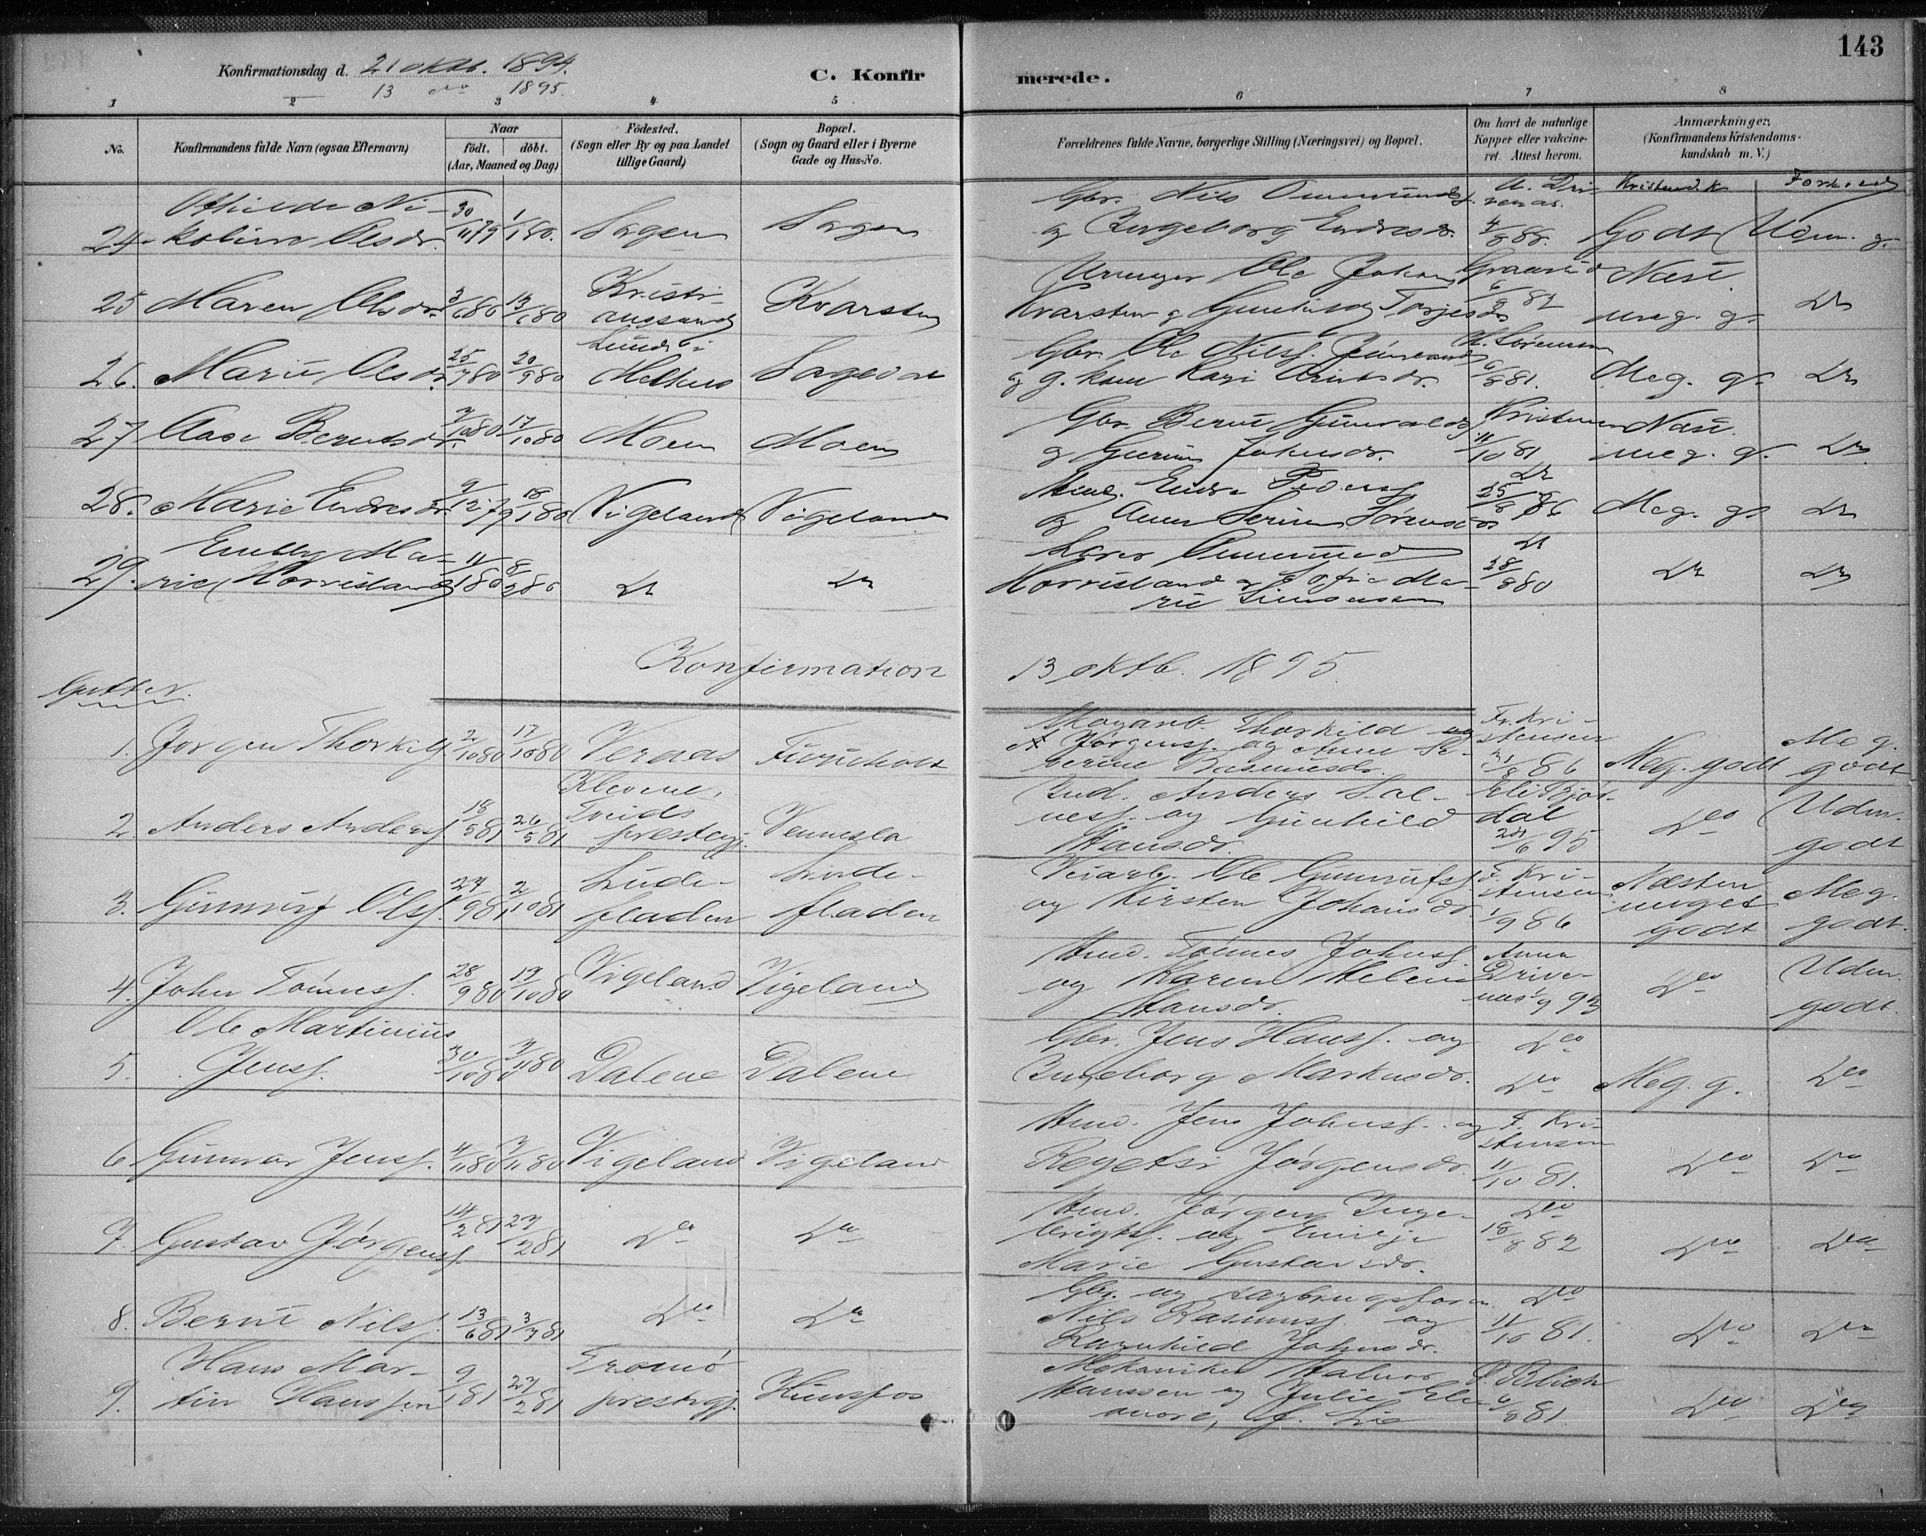 143
Konfirmationsdag d. 21 oktb. 1894.
13 do 1895.
C. Konfirmerede.
1 2 3 4 5 6 7 8
No.
Konfirmandens fulde Navn (ogsaa Efternavn)
Naar
født. døbt.
(Aar, Maaned og Dag)
Fødested.
(Sogn eller By og paa Landet
tillige Gaard)
Bopæl.
(Sogn og Gaard eller i Byerne
Gade og Hus-No.
Forældrenes fulde Navne, borgerlige Stilling (Næringsvei) og Bopæl.
Om havt de naturlige
Kopper eller vakcine-
ret. Attest herom.
Anmærkninger.
(Konfirmandens Kristendoms-
kundskab m. V.)
24. Othilde Ni-
koline Olsdr. 30/11 79 1/1 80. Sagen Sagen
Gbr. Nils Ommunds
og Ingeborg Endresdr. 4/8 88. Godt Udm. g.
25 Maren Olsdr. 3/1 80 13/1 80 Kristi-
anssand Kvarsten
Ole Johns Graarud Næst
Kvarsten og Gunhild Torjesdr 6/9 82 meg. g. Do
26. Marie Olsdr. 25/7 80 20/9 80 Lunds i
Sagen
Gbr. Ole Nilss.
og g. kone Kari 6/8 81. Meg. g. Do
27 Aase Berntsdr. 7/10 80 17/10 80 Moen Moen
Gbr. Bernt Gunvalds Kristensen Næst
og Gurine Johnsdr. 11/10 81 meg. g. Do
28. Marie Endresdr. 9/12 79 18/1 80 Vigeland Vigeland
Endre Peders. Do
og Anne Serine Sørensdr 25/8 86 Meg. g. Do
29. Emily Ma-
rie Horrisland 11/1 80 8/2 80 Do Do
Lærer Ommund Do
Horrisland og Sofie Ma-
rie Simonsen 28/8 80 Do Do
Konfirmation 13 oktb. 1895.
Gutter.
1. Jørgen Thorkils. 2/10 80 17/10 80 Veraas Furuholt
Thorkild
Jørgens. og Anne Se-
verine Rasmusdr. Fr. Kri-
stensen
31/8 86 Meg. godt Meg.
godt
2. Anders Anders. 18/5 81 26/5 81 Klevene,
Tveids
prestegj. Vennesla
Ind. Anders Sal-
ves. og Gunhild
Hansdr. Eli Bjør-
dal
24/6 95 Do Udm.
godt
3. Gunnuf Ols. 27/9 81 2/10 81 Lude-
fladen Lude-
fladen
Veiarb. Ole Gunnufs.
og Kirsten Johansdr. F. Kri-
stensen
1/9 86 Næsten
meget
godt Meg.
godt.
4. John Tønness. 28/9 80 19/10 80 Vigeland Vigeland
Tønnes Johns.
og Karen Helene
Hansdr. Anna
Drive-
nes 1/9 93 Do Udm.
godt.
5. Ole Martinius
Jens. 30/10 80 7/11 80 Dalene Dalene
Gbr. Jens Hans. og
Ingeborg Markusdr. Do
Do Meg. g. Do
6 Gunnar Jens. 4/11 80 7/11 80 Vigeland Vigeland
Jens Johns. og
Jørgensdr. F. Kri-
stensen
11/10 81. Do Do
7. Gustav Jørgens. 14/2 81 27/2 81 Do Do
Jørgen Inge-
brigts. og
Marie Gustavsdr. Do
18/8 82 Do Do
8. Bernt Nils. 13/6 81 3/7 81 Do Do
Gbr. og sagbrugsform.
Nils Rasmus. og
Ragnhild Johnsdr. Do
11/10 81. Do Do
9. Hans Mar-
tin Hanssen 9/1 81 27/2 81 Tromø
prestegj. Hunsfos
Mekaniker
Hanssen og Julie Ele-
onore, f. Lie Blich
6/9 81. Do Do